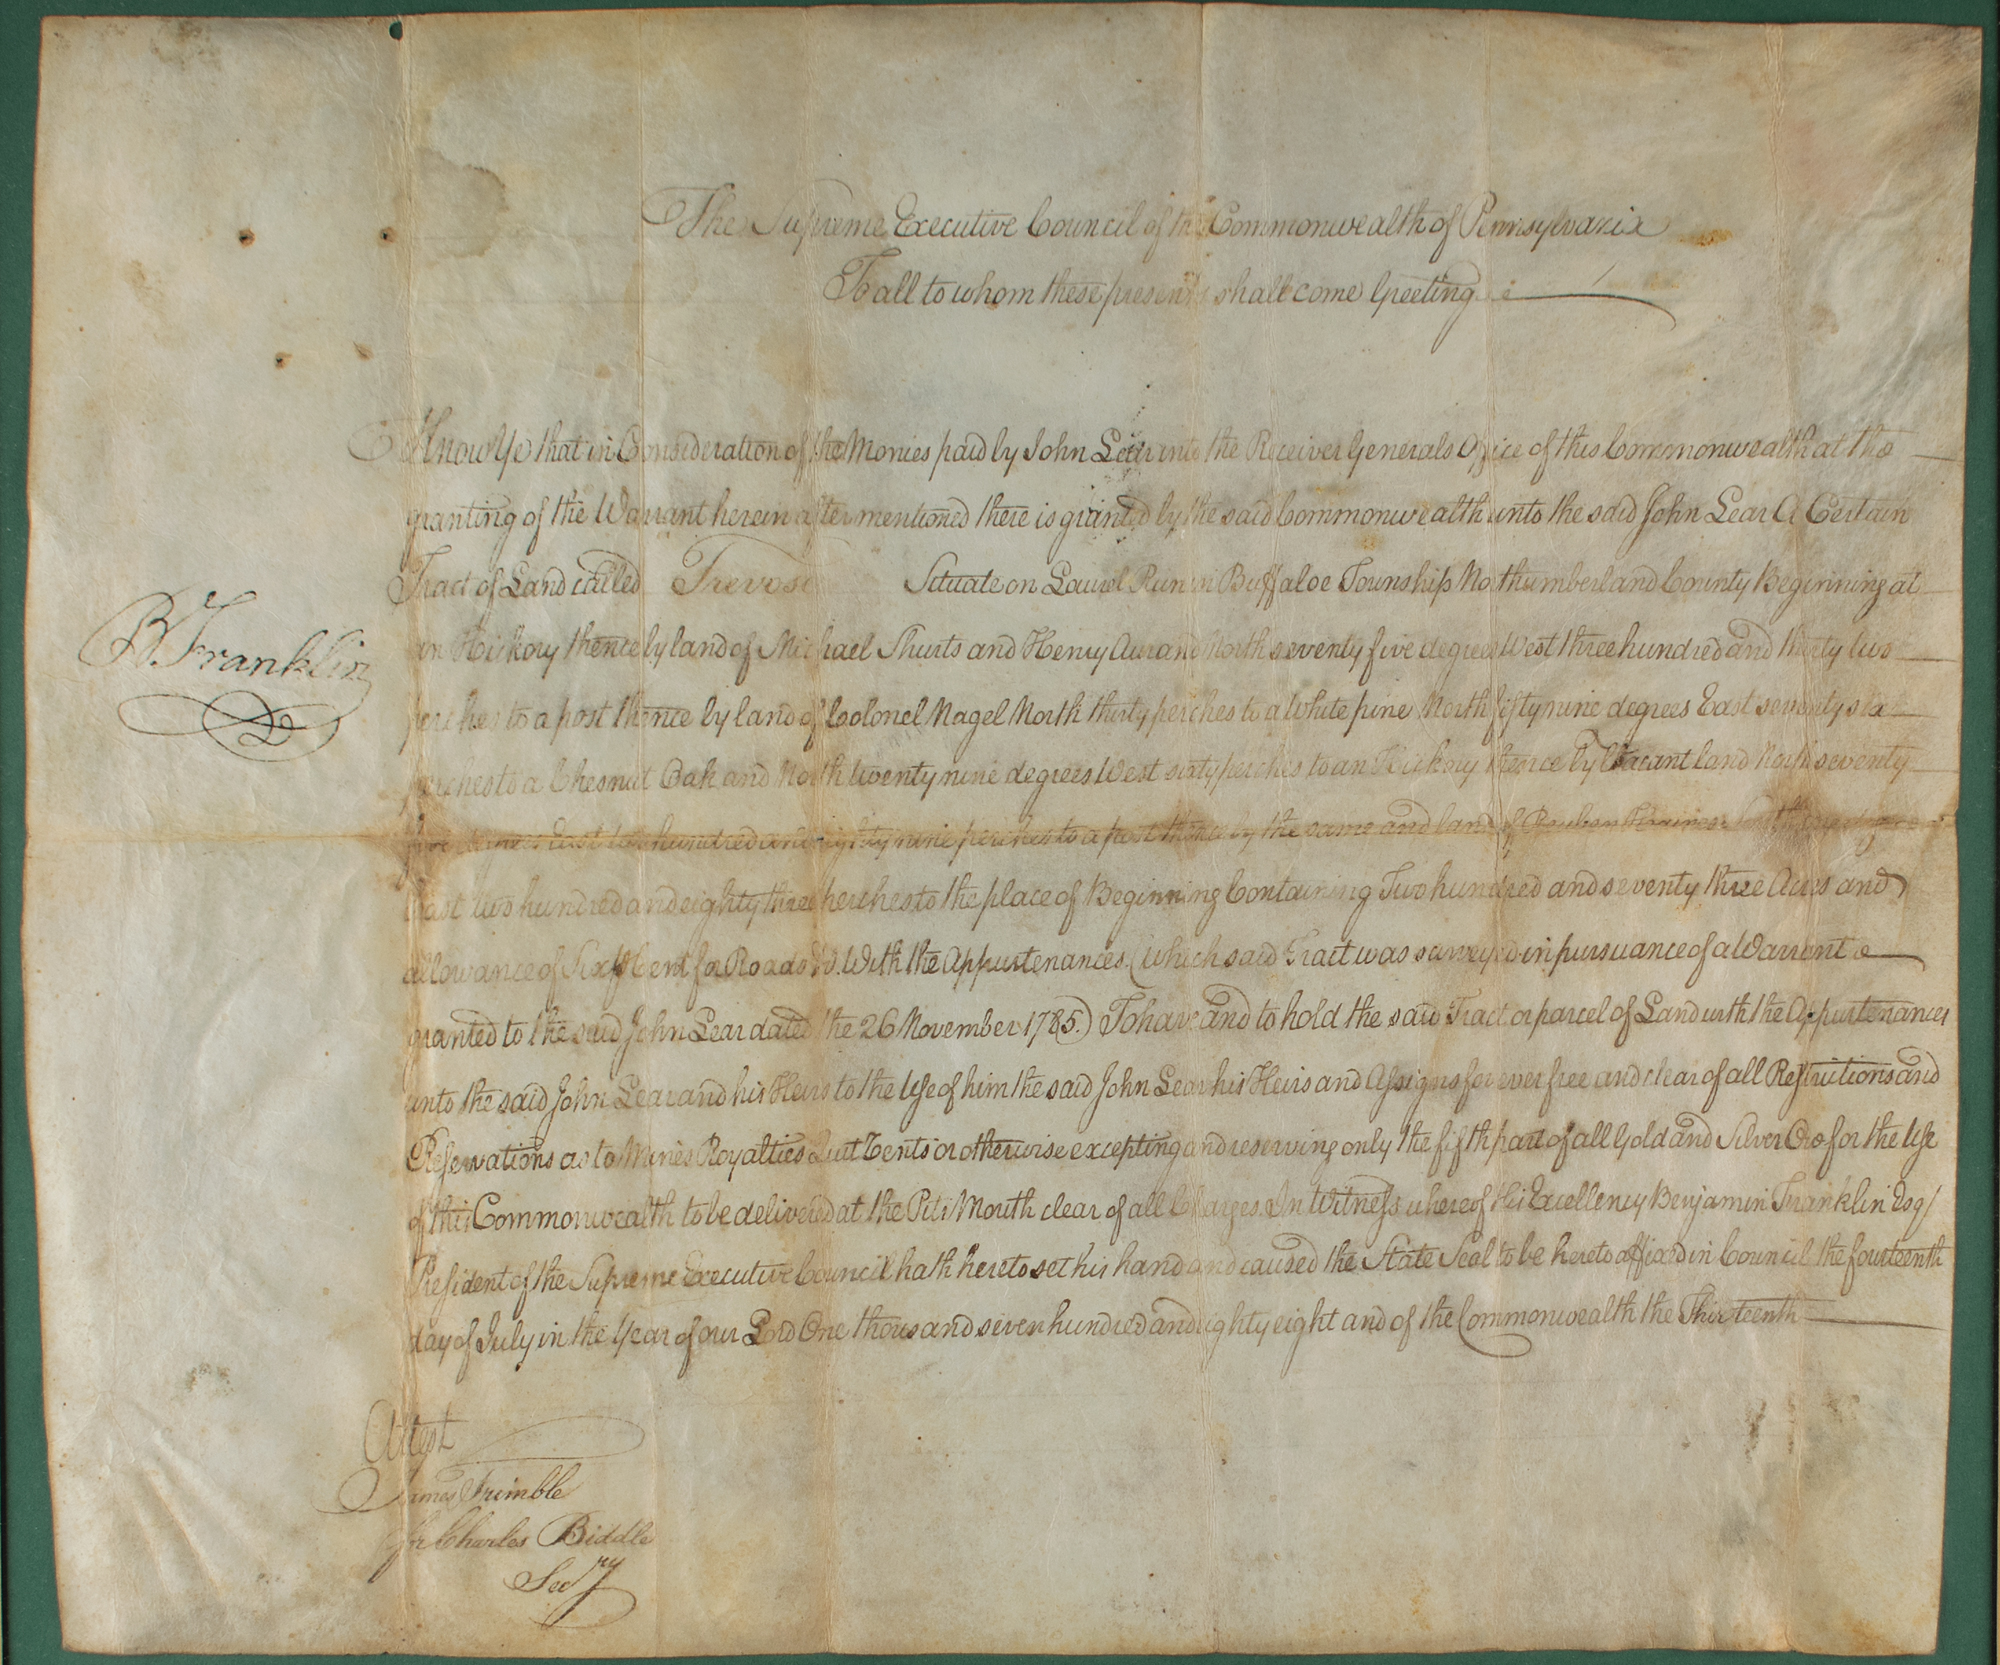 The Supreme Executive Council of the Commonwealth of Pennsylvania
To all to whom these presents shall come Greeting
Know Ye that in Consideration of the Monies paid by John Lear into the Receiver Generals Office of this Commonwealth at the
granting of the Warrant herein after mentioned there is granted by the said Commonwealth unto the said John Lear A Certain
Tract of Land called Trevose Situate on Laurel Run in Buffaloe Township Northumberland County Beginning at
an Hickory thence by land of Michael Shurts and Henry Aurand North seventy five degrees West three hundred and thirty two
perches to a post thence by land of Colonel Nagel North thirty perches to a White pine North fifty nine degrees East seventy six
perches to a Chesnut Oak and North twenty nine degrees West sixty perches to an Hickory thence by Vacant land North seventy
five degrees East two hundred and eighty nine perches to a post thence by the same and land of Reuben
East two hundred and eighty three perches to the place of Beginning Containing Two hundred and seventy three Acres and
allowance of Six P Cent for Roads &c. With the Appurtenances. (which said Tract was surveyed in pursuance of a Warrant
granted to the said John Lear dated the 26 November 1785.) To have and to hold the said Tract or parcel of Land with the Appurtenances
unto the said John Lear and his Heirs to the Use of him the said John Lear his Heirs and Assigns for ever free and clear of all Restrictions and
Reservations as to Mines Royalties Quit Rents or otherwise excepting and reserving only the fifth part of all Gold and Silver Ore for the Use
of this Commonwealth to be delivered at the Pits Mouth clear of all Charges. In Witness whereof His Excellency Benjamin Franklin Esq/
President of the Supreme Executive Council hath hereto set his hand and caused the State Seal to be hereto affixed in Council the fourteenth
day of July in the Year of our Lord One thousand seven hundred and eighty eight and of the Commonwealth the Thirteenth
B. Franklin
Attest
James Trimble
for Charles Biddle
Secry